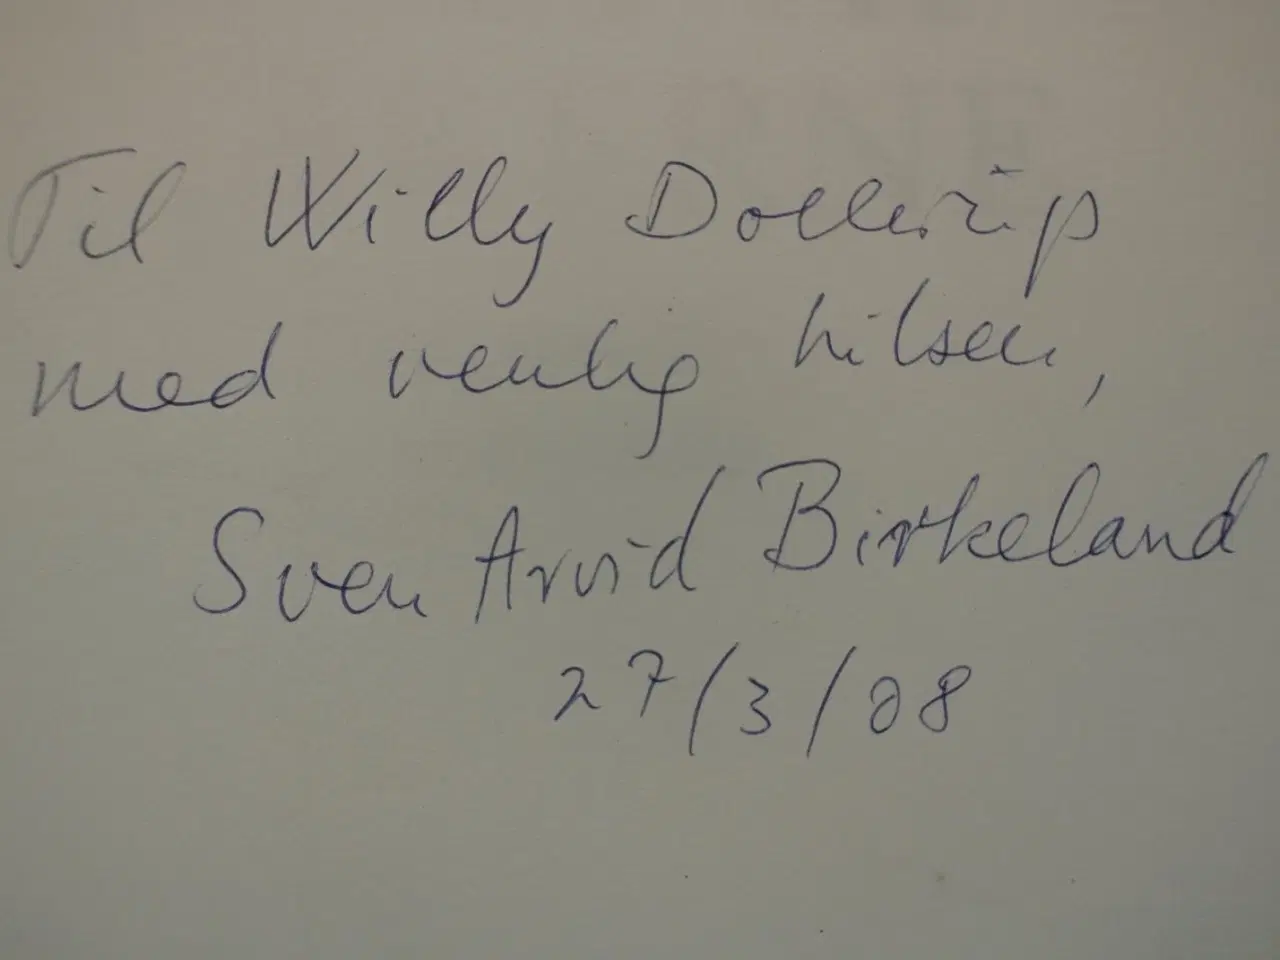 Til Willy Dollerup
med venlig hilsen,
Sven Arvid Birkeland
27/3/08